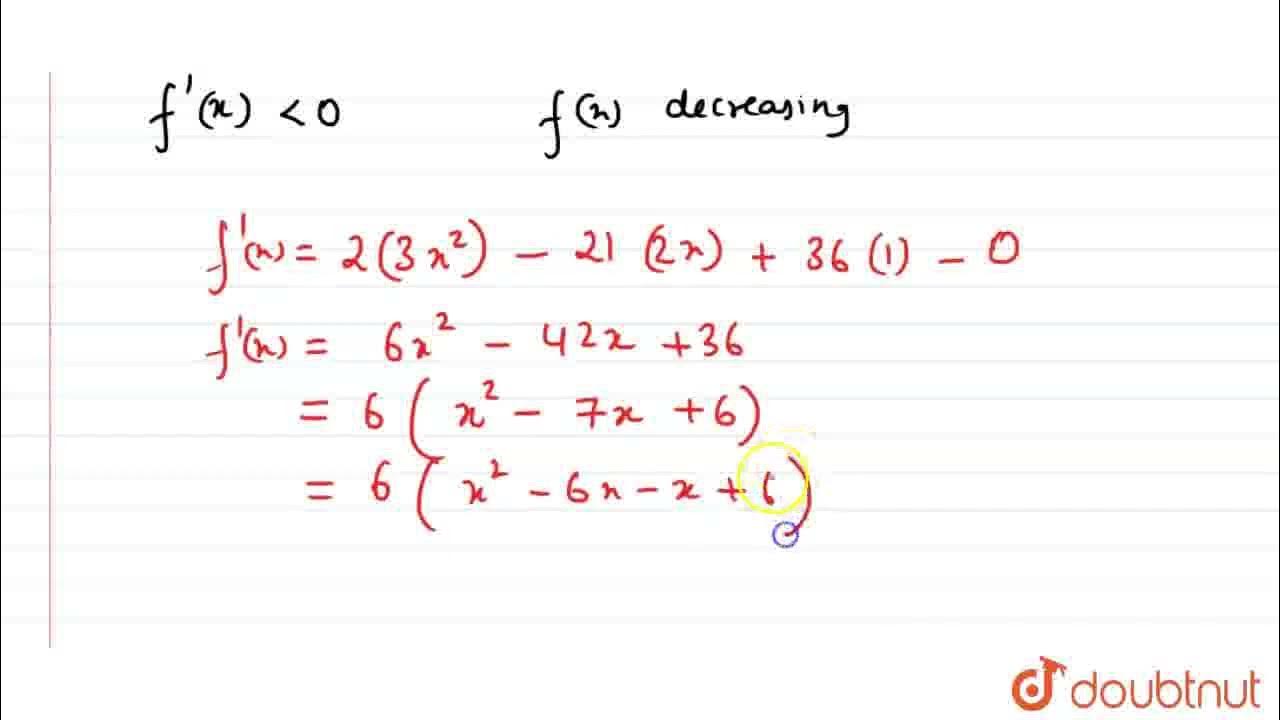 f'(x) < 0 f(x) decreasing
f'(x) = 2(3x²) - 21 (2x) + 36 (1) - 0
f'(x) = 6x² - 42x + 36
= 6 ( x² - 7x + 6)
= 6 ( x² - 6x - x + 6)
doubtnut